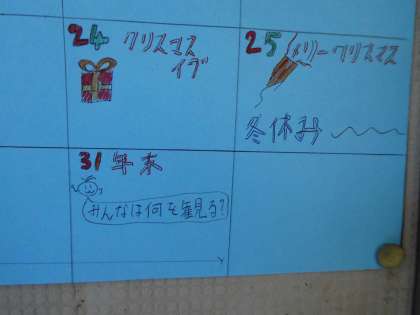 24 クリスマス
イブ
25 メリークリスマス
冬休み
31 年末
みんなは何を観る?